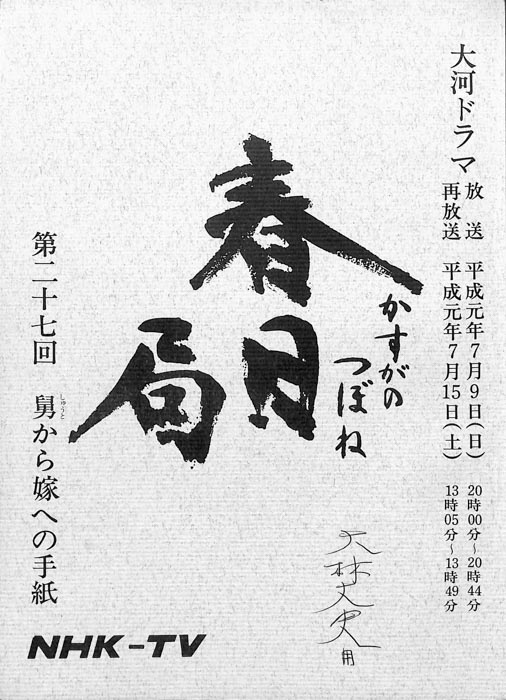 大河ドラマ
放送 平成元年7月9日(日) 20時00分~20時44分
再放送 平成元年7月15日(土) 13時05分~13時49分
春日局
かすがの
つぼね
大林丈史用
第二十七回 舅から嫁への手紙
しゅうと
NHK-TV